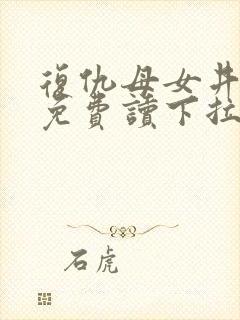 復仇母女井
免費讀下拉
石虎